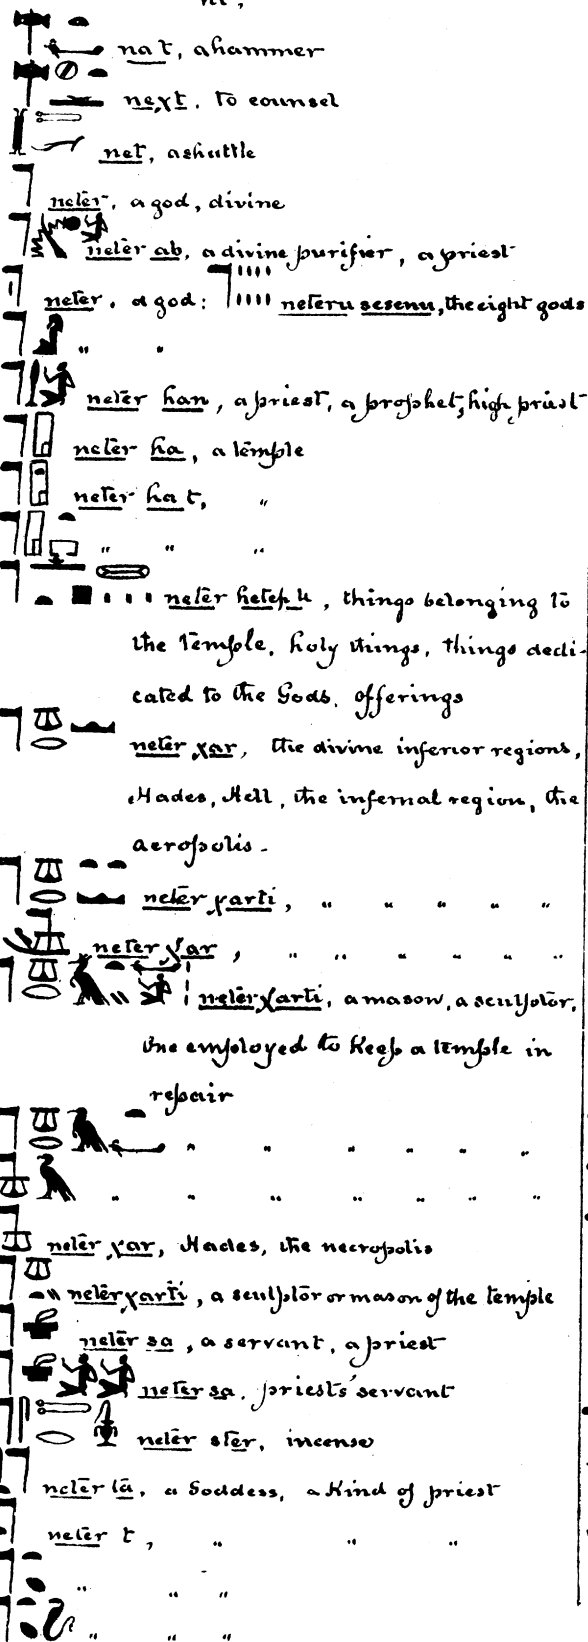 na t, a hammer
neχt. to counsel
net, a shuttle
neter, a god, divine
neter ab, a divine purifier, a priest
neter. a god: neteru sesenu, the eight gods
" "
neter han, a priest, a prophet, high priest
neter ha, a temple
neter ha t, "
" " "
neter hetep u, things belonging to
the temple, holy things, things dedi-
cated to the Gods. offerings
neter χar, the divine inferior regions,
Hades, Hell, the infernal region, the
aeropolis.
neter χarti, " " " " "
neter χar, " " " " " "
neter χarti, a mason, a sculptor,
one employed to keep a temple in
repair
" " " " " "
" " " " " "
neter χar, Hades, the necropolis
neter χarti, a sculptor or mason of the temple
neter sa, a servant, a priest
neter sa. priests' servant
neter ster, incense
neter ta, a Goddess, a kind of priest
neter t, " " "
" " "
" " "